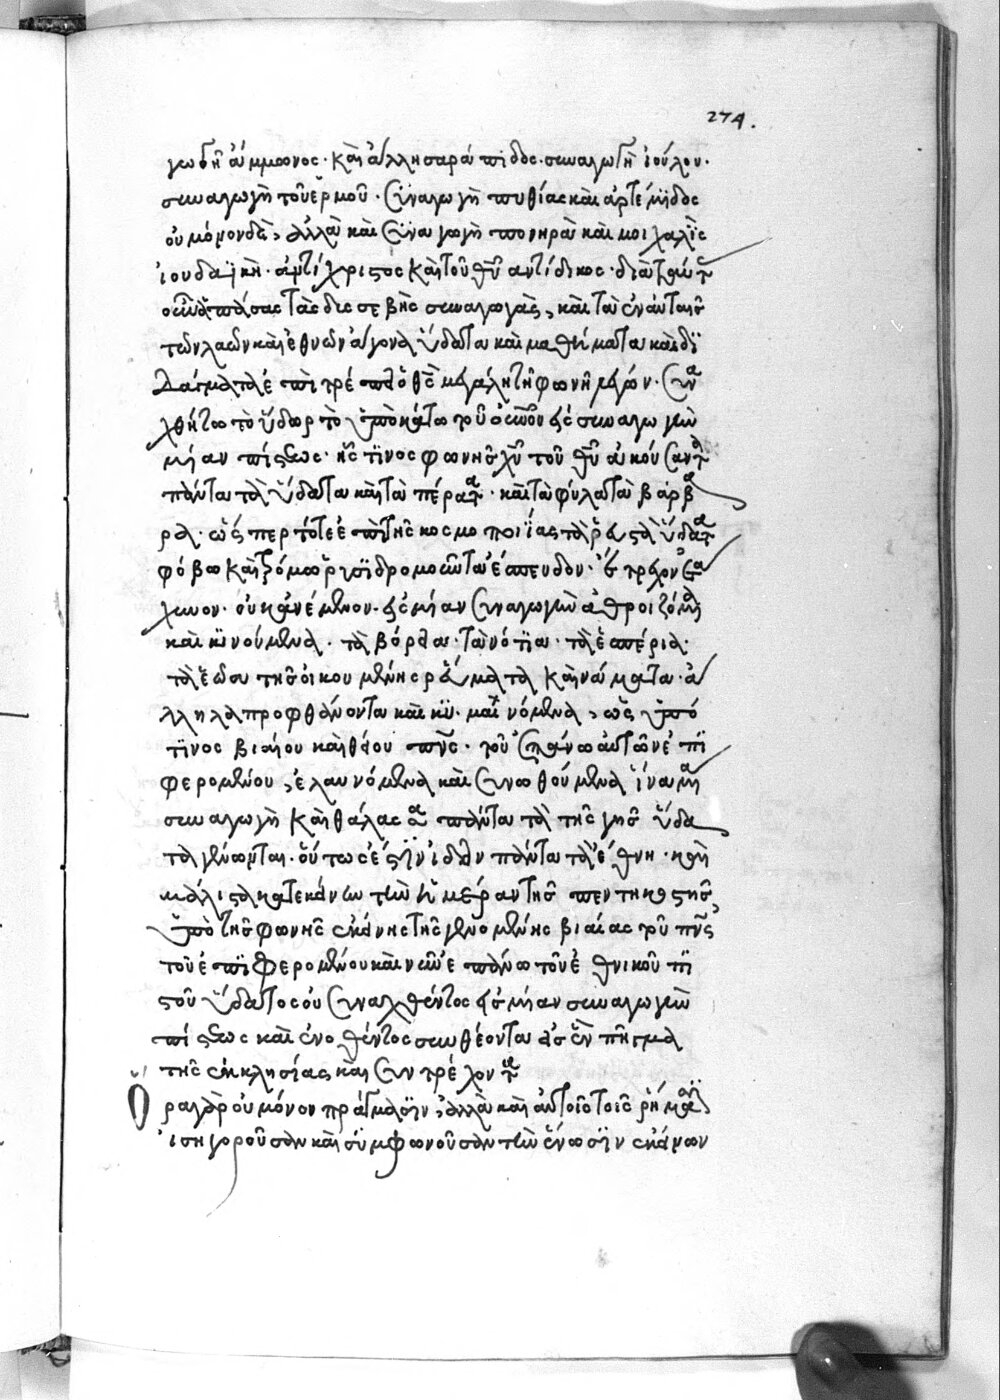 274.
γωγὴ ἄμμωνος· καὶ ἄλλη σαράπιδος· συναγωγὴ ἰούλου·
συναγωγὴ τοῦ ἑρμοῦ· συναγωγὴ πυθίας καὶ ἀρτέμιδος
οὐ μόνον δὲ, ἀλλὰ καὶ συναγωγὴ πονηρὰ καὶ μοιχαλὶς
ἰουδαϊκὴ· ἀντίχριστος καὶ τοῦ θῦ ἀντίδικος· διὰ
πάσας τὰς δισσεβῆς συναγωγὰς, καὶ τὰ ἐνάντια
τῶν λαῶν καὶ ἐθνῶν ἄγονα ὕδατα καὶ μαθήματα καὶ δι
δάγματα ἐπιτρέπει ὁ θς μεγάλη τῆ φωνῆ λέγων· συνα
χθήτω τὸ ὕδωρ τὸ ὑποκάτω τοῦ οὐνοῦ εἰς συναγωγὴν
μίαν πίστεως· ἧς τινος φωνῆς χῦ τοῦ θῦ ἀκούσαντα
πάντα τὰ ὕδατα καὶ τὰ πέρατα· καὶ τὰ φύλα τὰ βάρβα
ρα· ὥσπερ τότε ἐπὶ τῆς κοσμοποιίας τὰ ὕδατα
φόβω καὶ τρόμω δρομοῦντα ἔσπευδον· ἔτρεχον
οὐκ ἀνέμενον· εἰς μίαν συναγωγὴν ἀθροιζόμενα
καὶ κινούμενα· τὰ βόρεια· τὰ νότια· τὰ ἑσπέρια·
τὰ ἑῶα τῆς οἰκουμένης ῥεύματα καὶ νάματα· ἀ
λληλα προφθάνοντα καὶ κυμαινόμενα, ὡς ὑπό
τινος βιαίου καὶ θείου πνς· τοῦ ἐπάνω αὐτῶν ἐπι
φερομένου, ἐλαυνόμενα καὶ συνωθούμενα ἵνα μία
συναγωγὴ καὶ θάλασσα πάντα τὰ τῆς γῆς ὕδα
τα γένωνται· οὕτως ἔστιν ἰδεῖν πάντα τὰ ἔθνη· καὶ
μάλιστα κατ' ἐκείνω τὴν ἡμέραν τῆς πεντηκοστῆς,
ὑπὸ τῆς φωνῆς ἐκείνης τῆς γενομένης βιαίας τοῦ πνς
τοῦ ἐπιφερομένου καὶ νῦν ἐπάνω τοῦ ἐθνικοῦ πι
στοῦ ὕδατος οὐ συναχθέντος εἰς μίαν συναγωγὴν
πίστεως καὶ ἑνωθέντος συνθέοντα εἰς ἓν πῆγμα
τῆς ἐκκλησίας καὶ συντρέχοντα
Ὅρα γὰρ οὐ μόνον πράγμασιν, ἀλλὰ καὶ αὐτοῖς τοῖς ῥήμασιν
ἰσηγοροῦσαν καὶ συμφωνοῦσαν τὴν ἕνωσιν ἐκείνων